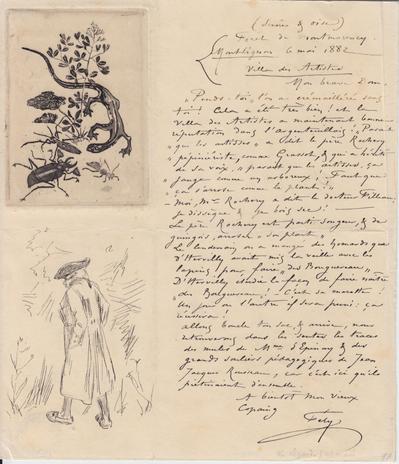 (Seine & Oise)
Foret de Montmorency
Montlignon 6 mai 1882
Villa des Artistes
Mon brave
Pends-toi, l'on a crémaillère sans
toi! Cela a été très bien, et la
Villa des Artistes a maintenant bonne
réputation dans l'argenteuillais:
que les artistes, a dit le père Rochery
pépiniériste, comme Grassot, qui a hérité
de sa voix,
ça s'arrose comme le plant!"
- Moi, Mr Rochery a dit le docteur Filhau,
je dissèque & je bois sec!
Le père Rochery est parti songeur, & de
guingois, arroser sa plant
Le lendemain on a mangé des homards que
D'Hervilly avait mis la veille avec les
lapins, pour faire des Bouguereau,
D'Hervilly étudie la façon de faire naître
des Bouguereau! C'est sa marotte!
Un jour ou l'autre il sera puni: ça
réussira!
Allons boucle ton sac, & arrive, nous
retrouverons dans les sentes les traces
des mules de Mme d'Epinay & des
grands souliers pédagogiques de Jean
Jacques Rousseau, car c'est ici qu'ils
prétinaient d'ensemble.
A bientôt mon vieux
Copaing
Fély